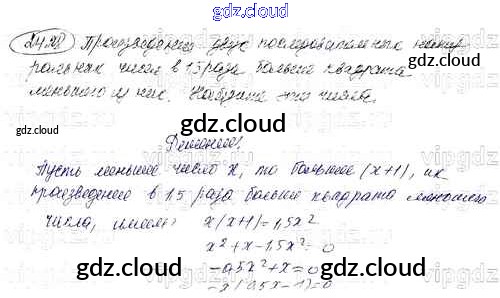 gdz.cloud
24.28 Произведение двух последовательных натуральных чисел в 1,5 раза больше квадрата
меньшего из них. Найдите эти числа.
gdz.cloud gdz.cloud
gdz.cloud
Решение.
Пусть меньшее число x, то большее (x+1), их
произведение в 1,5 раза больше квадрата меньшего
числа, имеем: x(x+1)=1,5x²
x²+x-1,5x²=0
-0,5x²+x=0
-x(0,5x-1)=0
gdz.cloud gdz.cloud
gdz.cloud gdz.cloud